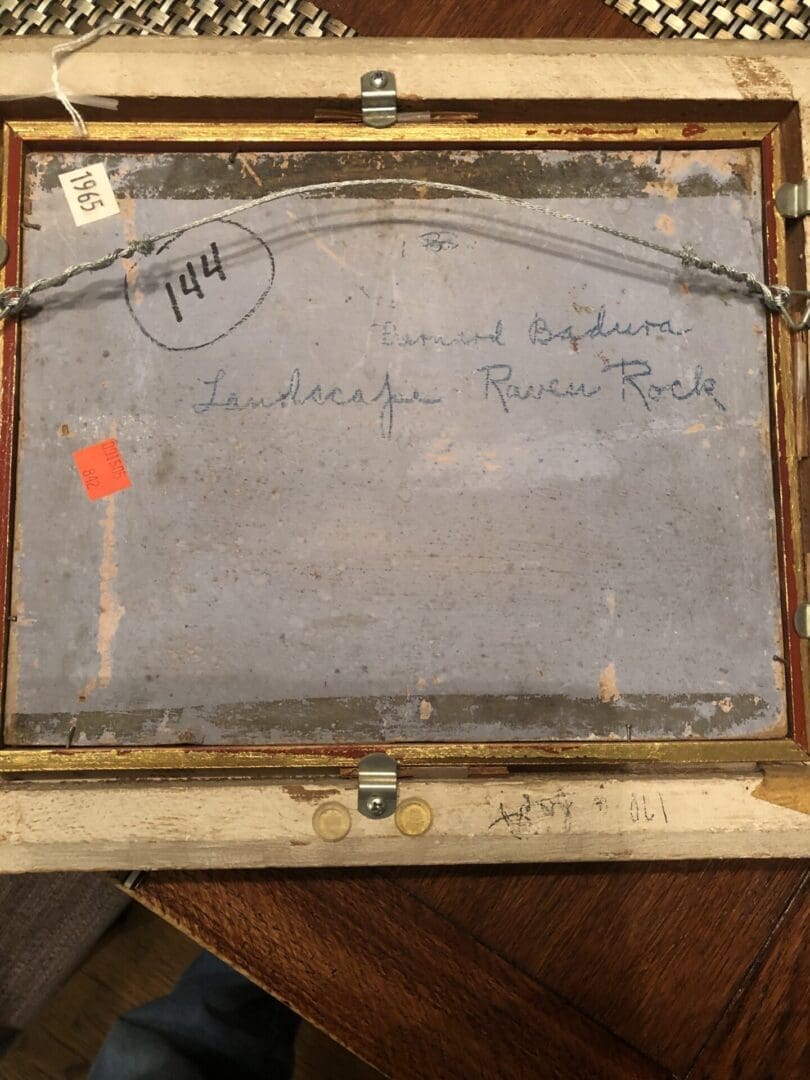 1965
144
Bernard Badura
Landscape Raven Rock
842